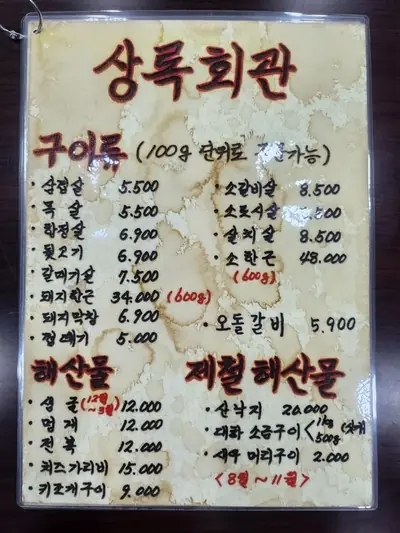 상록회관
구이류 (100g 단위로 주문가능)
· 삼겹살 5.500
· 목살 5.500
· 항정살 6.900
· 뒷고기 6.900
· 갈매기살 7.500
· 돼지한근 34.000 (600g)
· 돼지막창 6.900
· 껍데기 5.000
· 소갈비살 8.500
· 소토시살 8.500
· 살치살 8.500
· 소한근 48.000
(600g)
· 오돌갈비 5.900
해산물
· 생굴 (12월~3월) 12.000
· 멍게 12.000
· 전복 12.000
· 치즈가리비 15.000
· 키조개구이 9.000
제철해산물
· 산낙지 20.000
· 대하 소금구이 < 1kg 500g
· 새우 머리구이 2.000
<8월~11월>